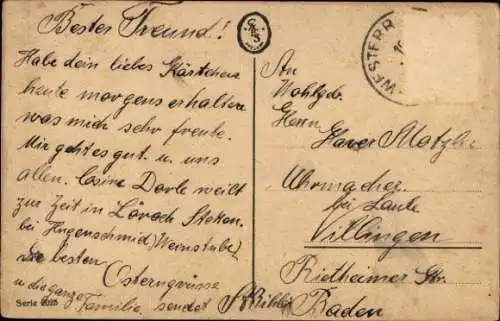 Bester Freund!
Habe dein liebes Kärtchen
heute morgens erhalten
was mich sehr freute.
Mir geht es gut. u. uns
allen. Cosine Dorle weilt
zur Zeit in Lörach Stetten.
bei Hugenschmid, (Weinstube)
Die besten
Ostergrüsse
u die ganze
Familie sendet
Serie
WESTERR
An
Wohlgeb.
Herrn
Xaver Matzler
Uhrmacher
bei Laule
Villingen
Rietheimer Str.
Baden